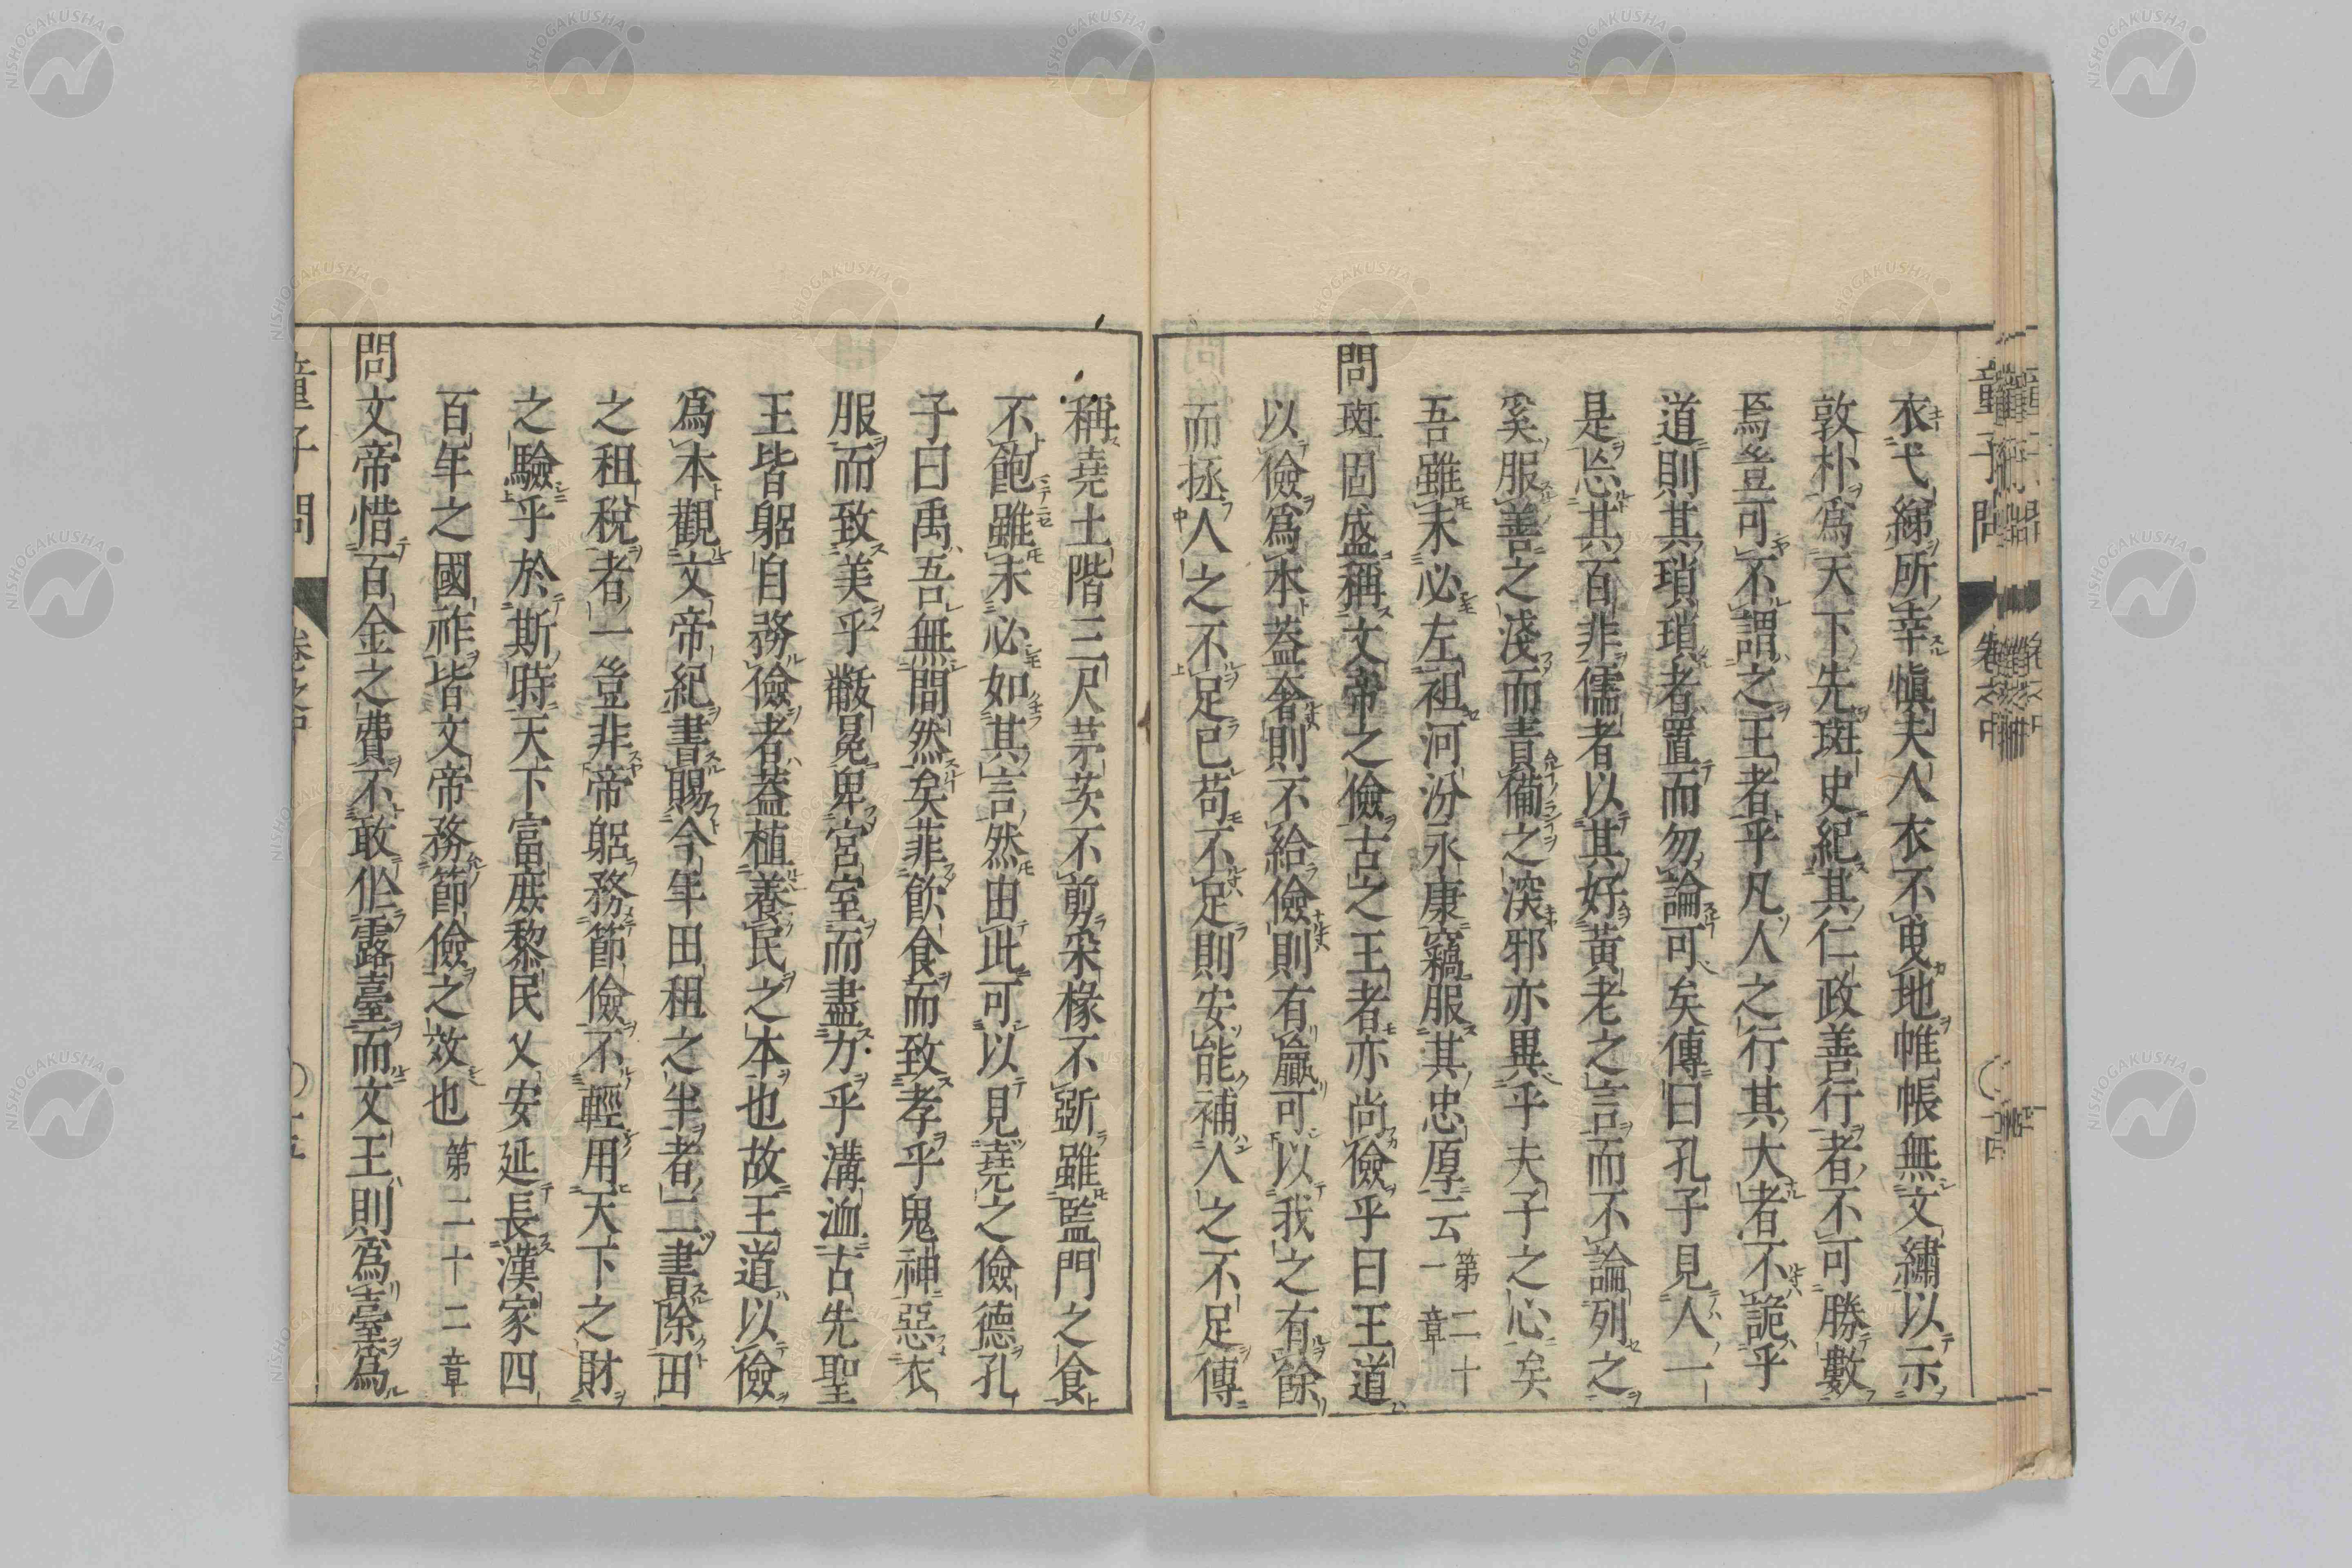 衣弋綈所幸愼夫人衣不曳地帷帳無文繡以示
敦朴爲天下先斑史紀其仁政善行者不可勝數
焉豈可不謂之王者乎凡人之行其大者不詭乎
道則其瑣瑣者置而勿論可矣傳曰孔子見人一
是忘其百非儒者以其好黃老之言而不論列之
奚服善之淺而責備之深邪亦異乎夫子之心矣
吾雖未必左祖河汾永康竊服其忠厚云第二十一章
問斑固盛稱文帝之儉古之王者亦尚儉乎曰王道
以儉爲本葢奢則不給儉則有贏可以我之有餘
而拯人之不足已苟不足則安能補人之不足傳
稱堯土階三尺茅茨不剪采椽不斲雖監門之食
不飽雖未必如其言然由此可以見堯之儉德孔
子曰禹吾無間然矣菲飮食而致孝乎鬼神惡衣
服而致美乎黻冕卑宮室而盡力乎溝洫古先聖
王皆躬自務儉者葢植養民之本也故王道以儉
爲本觀文帝紀書賜今年田租之半者二書除田
之租稅者一豈非帝躬務節儉不輕用天下之財
之驗乎於斯時天下富庶黎民乂安延長漢家四
百年之國祚皆文帝務節儉之效也第二十二章
問文帝惜百金之費不敢作露臺而文王則爲臺爲
童子問 卷之中